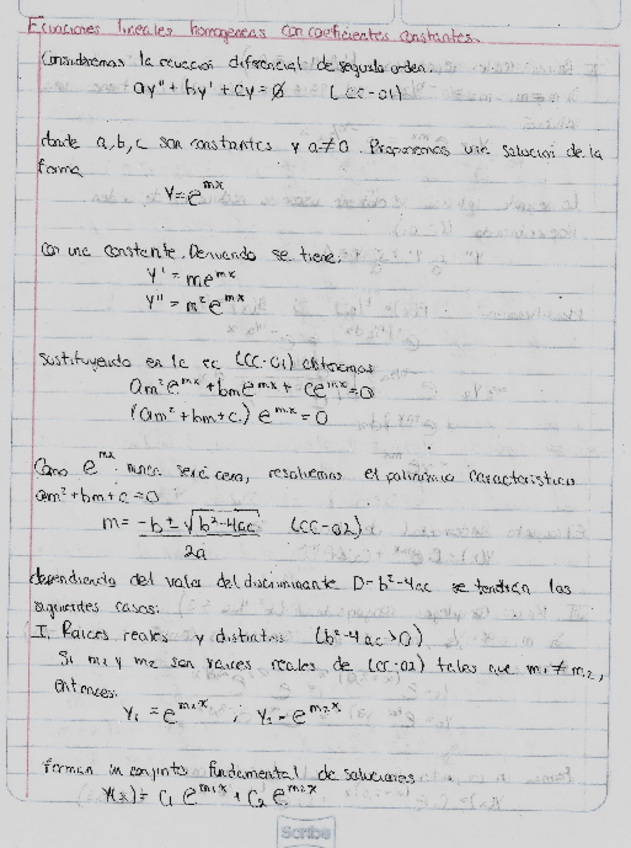 Ecuaciones lineales homogeneas con coeficientes constantes.
Consideremos la ecuacion diferencial de segundo orden.
ay'' + by' + cy = 0 (CC-01)
donde a, b, c son constantes y a≠0. Proponemos una solucion de la
forma
y = e^{mx}
con una constante. Derivando se tiene:
y' = me^{mx}
y'' = m²e^{mx}
sustituyendo en la ec (CC-01) obtenemos
am²e^{mx} + bme^{mx} + ce^{mx} = 0
(am² + bm + c) e^{mx} = 0
Como e^{mx} nunca será cero, resolvemos el polinomio caracteristico
am² + bm + c = 0
m = -b ± √b²-4ac (CC-02)
2a
dependiendo del valor del discriminante D = b²-4ac se tendrán los
siguientes casos:
I. Raices reales y distintas (b²-4ac>0)
Si m₁ y m₂ son raices reales de (CC-02) tales que m₁ ≠ m₂,
entonces:
y₁ = e^{m₁x} ; y₂ = e^{m₂x}
forman un conjunto fundamental de soluciones
y(x) = C₁ e^{m₁x} + C₂ e^{m₂x}
Scribe